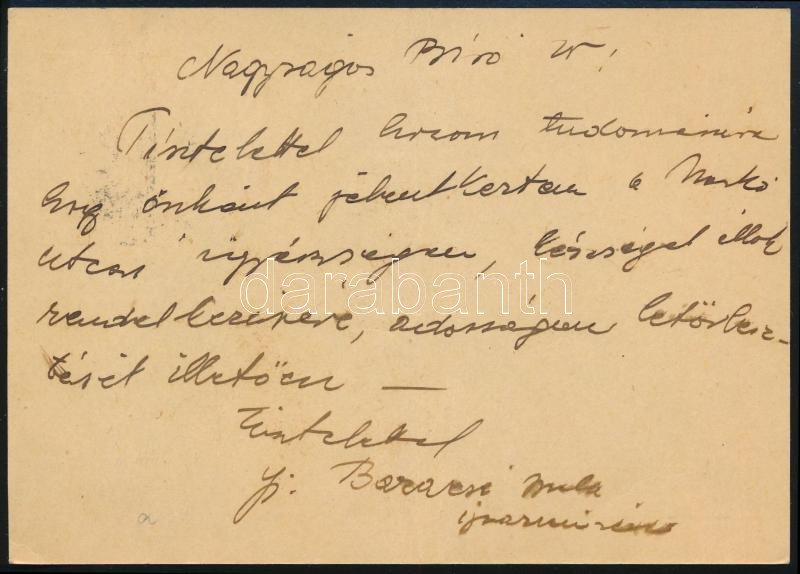 Nagyságos Bíró Ur!
Tisztelettel hozom tudomására
hogy önként jelentkeztem a Markó
utcai ügyészségen, készséggel állok
rendelkezésére, adósságom letörlesz-
tését illetően —
Tisztelettel
Baracsi
iparművész
a
darabanth